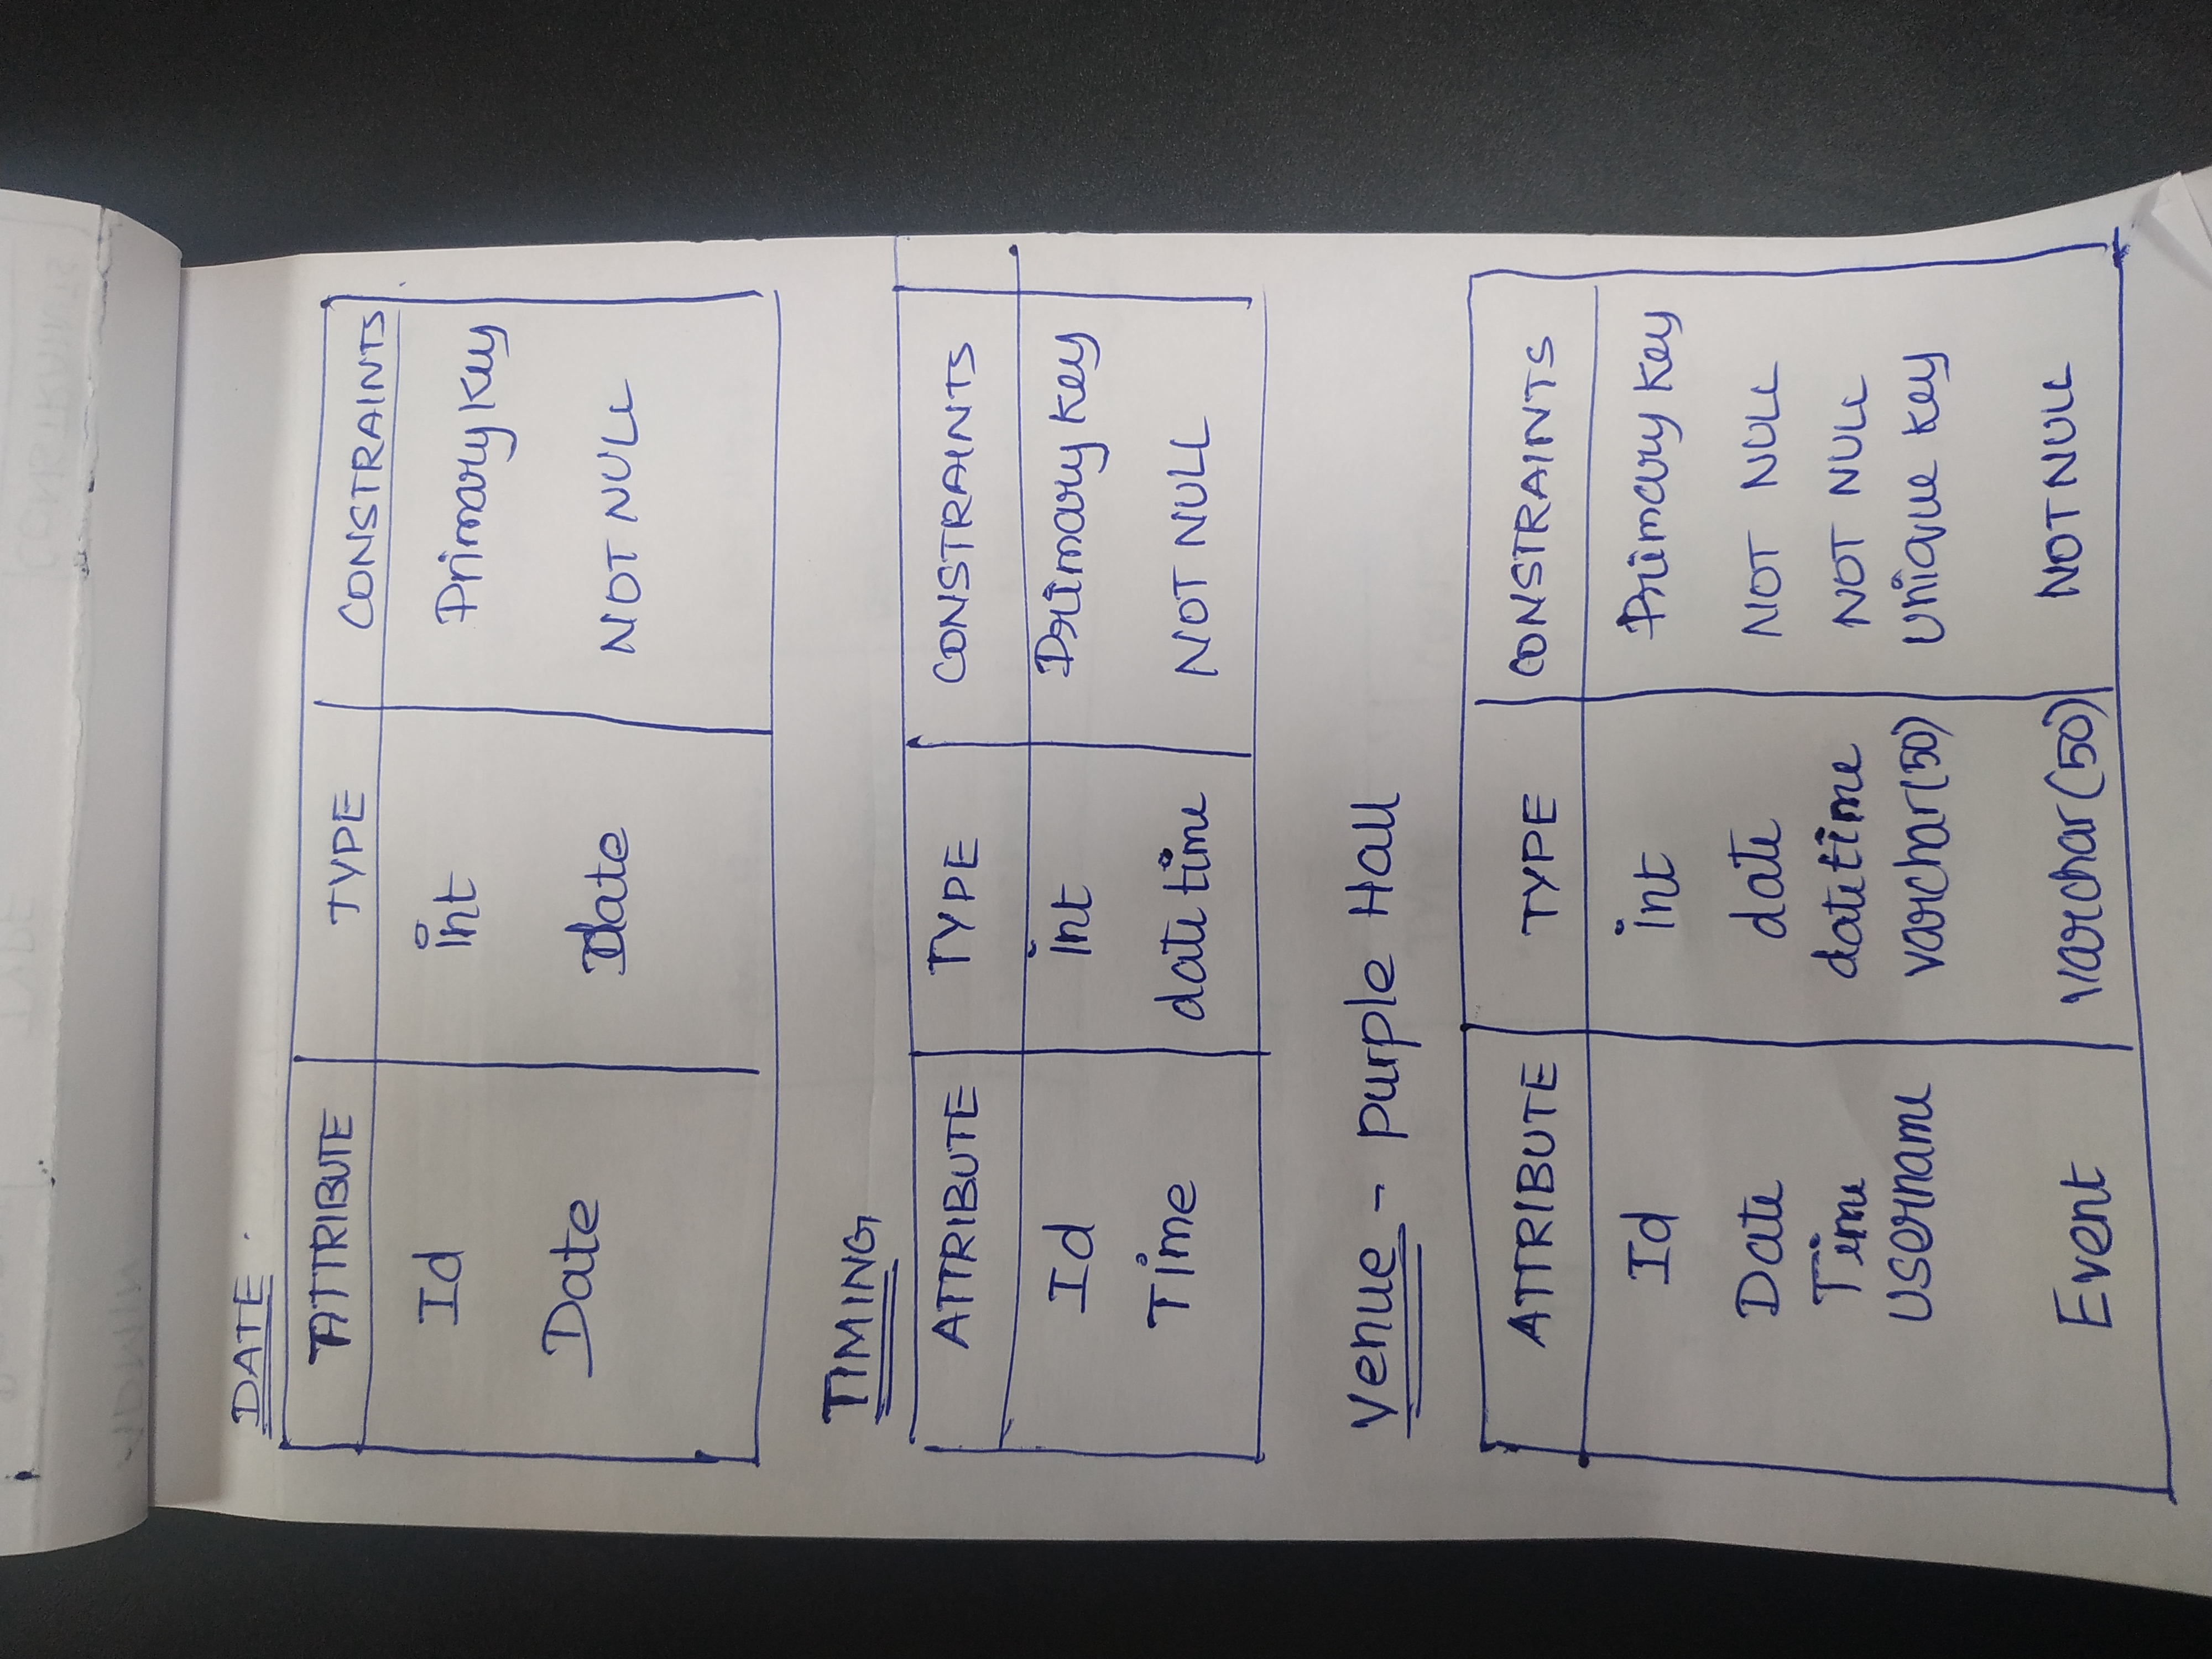 DATE
ATTRIBUTE TYPE CONSTRAINTS
Id int Primary Key
Date Date NOT NULL
TIMING
ATTRIBUTE TYPE CONSTRAINTS
Id int Primary Key
Time date time NOT NULL
Venue - Purple Hall
ATTRIBUTE TYPE CONSTRAINTS
Id int Primary Key
Date date NOT NULL
Time datetime NOT NULL
Username varchar(50) Unique Key
Event varchar(50) NOT NULL